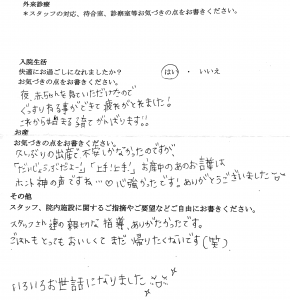 外来診療
＊スタッフの対応、待合室、診察室等お気づきの点をお書きください。
入院生活
快適にお過ごしになれましたか？ はい ・ いいえ
お気づきの点をお書きください。
夜、赤ちゃんを預っていただけたので
ぐっすり寝る事ができて疲れがとれました！
これから始まる子育てがんばります！！
お産
お気づきの点をお書きください。
久しぶりの出産で、不安しかなかったのですが、
「だいじょうぶだよ～」「上手！上手！」お産中のあのお言葉は
ホント神の声ですね…♡心強かったです！ありがとうございました
その他
スタッフ、院内施設に関するご指摘やご要望などご自由にお書きください。
スタッフさん達の親切な指導、ありがたかったです。
ごはんもとってもおいしくてまだ帰りたくないです（笑）
いろいろお世話になりました